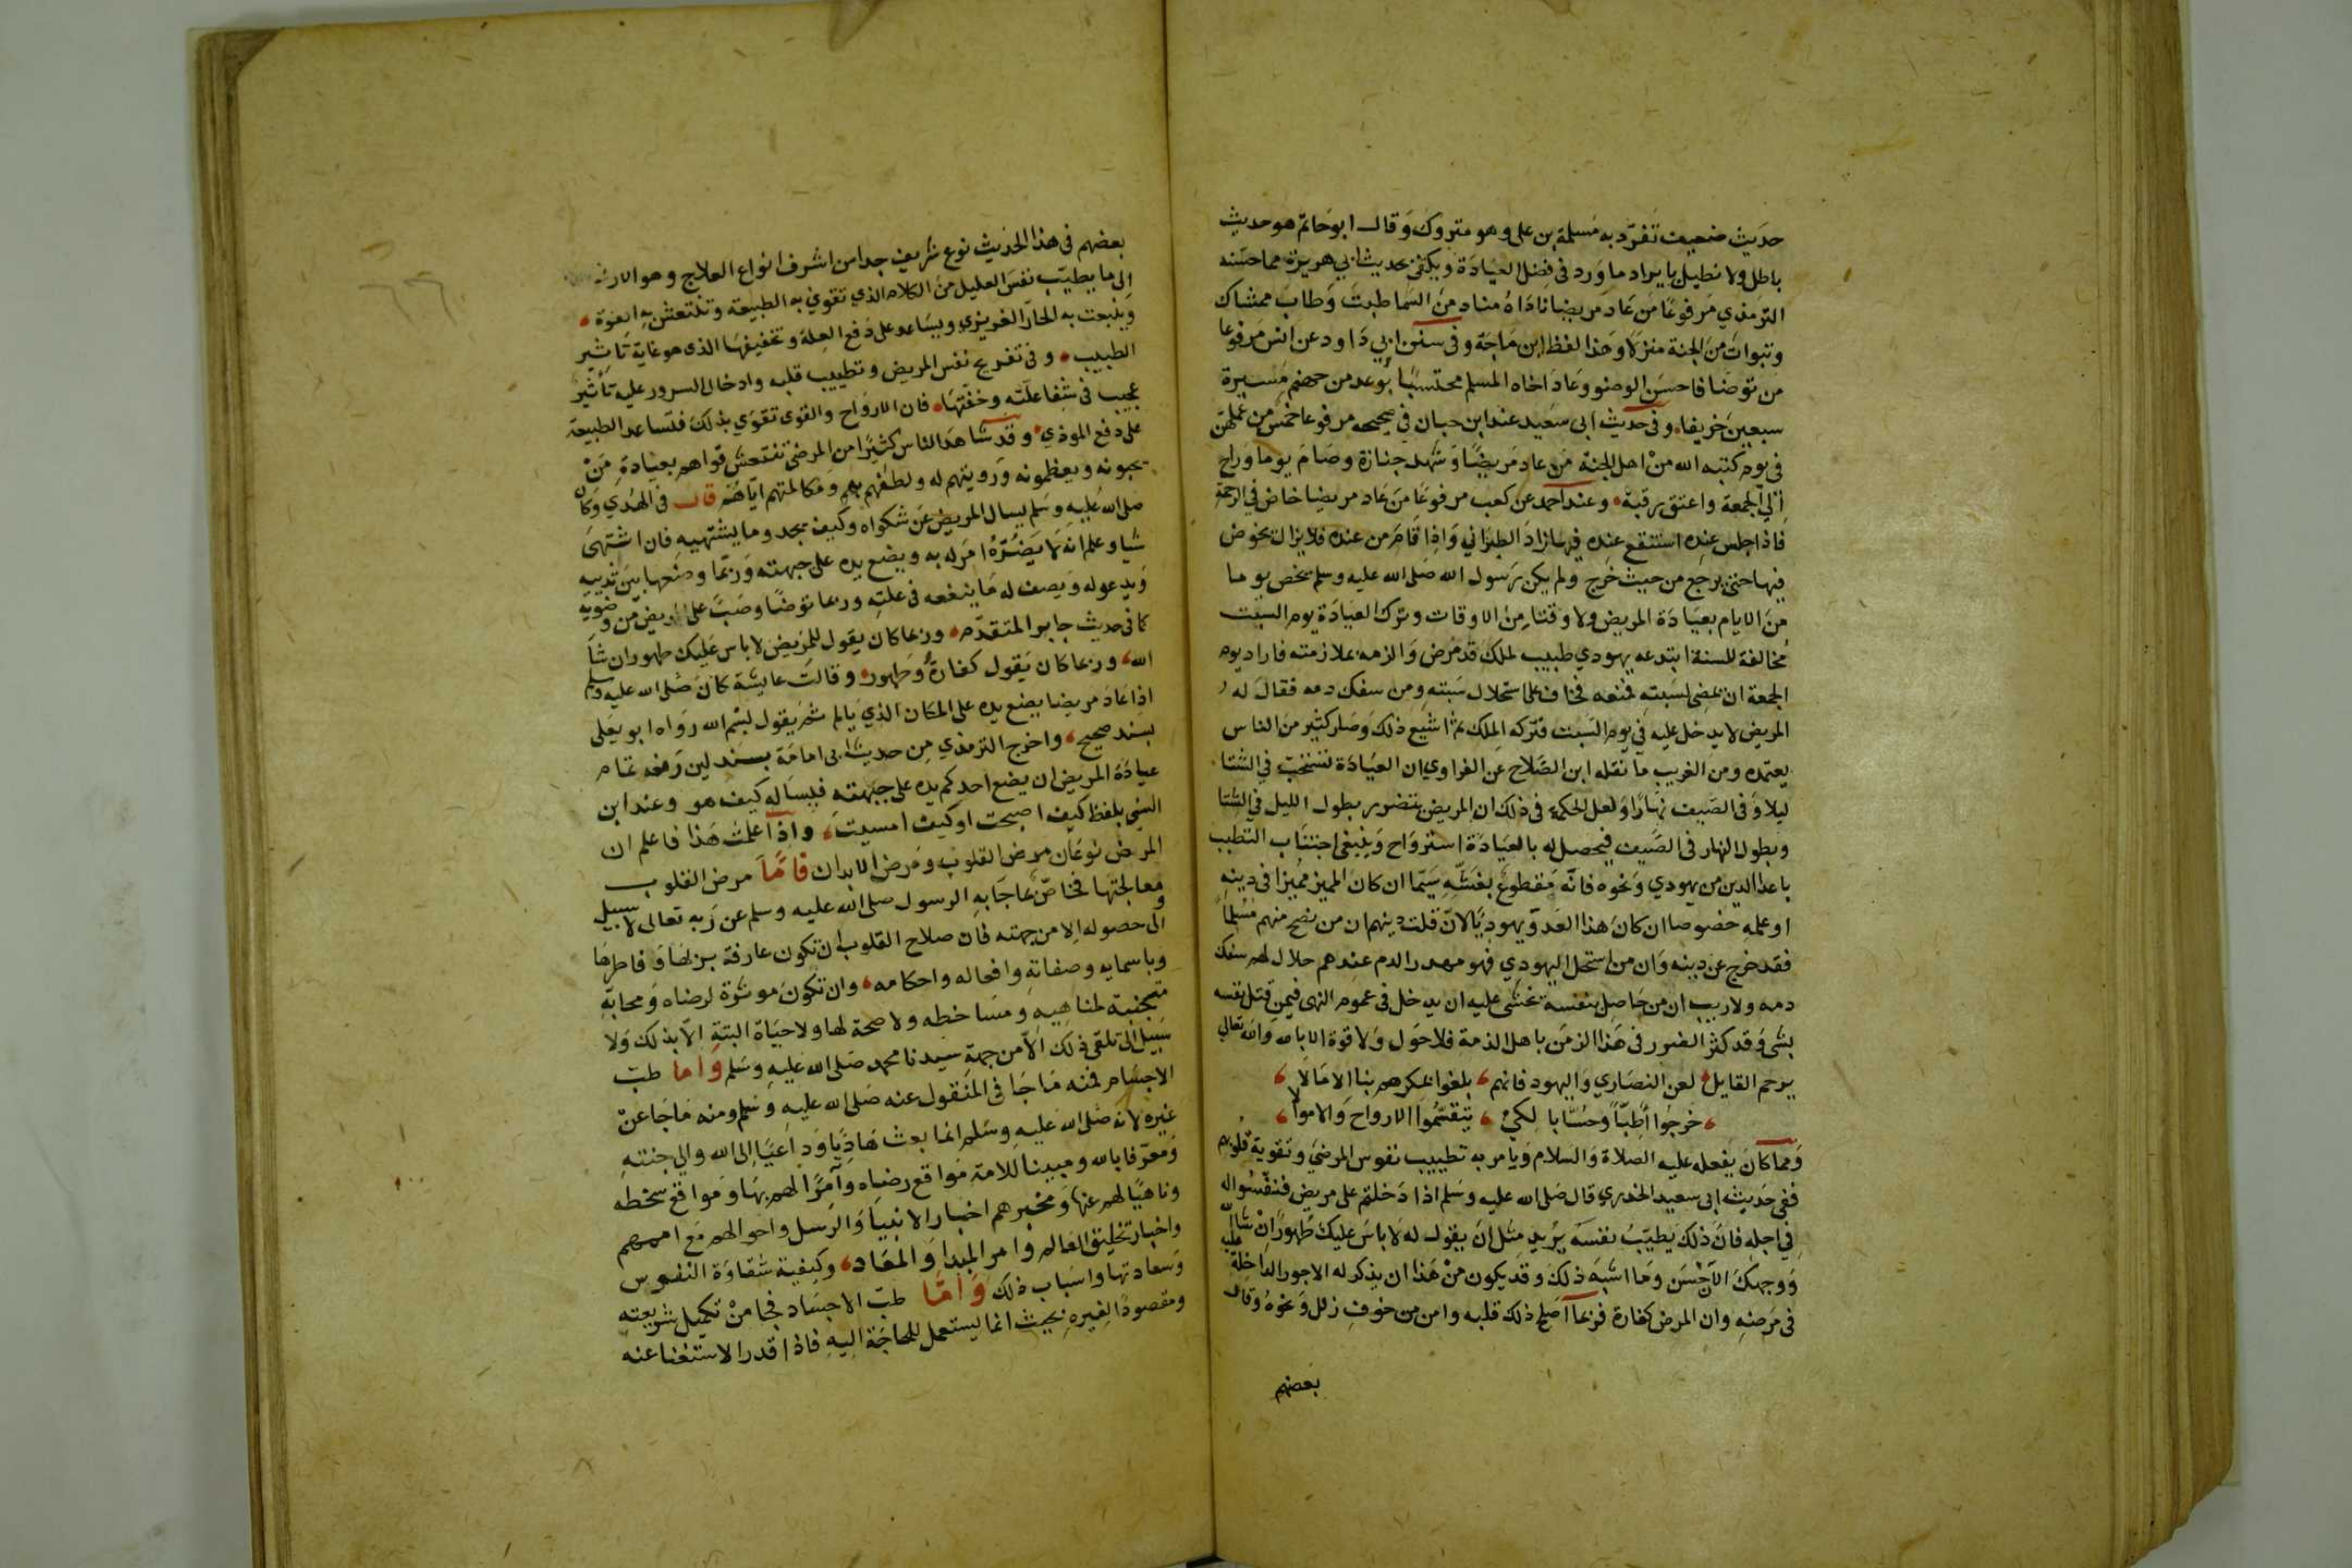 حديث ضعيف تفرد به مسلمة بن على وهو متروك وقال ابو حاتم هو حديث
باطل ولا نطيل بايراد ما ورد فى فضل العيادة ويكفى حديث ابي هريرة مما حسّنه
الترمذي مرفوعا من عاد مريضا ناداه مناد من السما طبت وطاب ممشاك
وتبوات من الجنة منزلا وهذا لفظ ابن ماجة وفى سنن ابي داود عن انس مرفوعا
من توضا فاحسن الوضو وعاد اخاه المسلم محتسبا بوعد من جهنم مسيرة
سبعين خريفا وفى حديث ابى سعيد عند ابن حبان في صحيحه مرفوعا خمس من عملهن
فى يوم كتبه الله من اهل الجنة من عاد مريضا وشهد جنازة وصام يوما وراح
إلي الجمعة واعتق رقبة وعند احمد عن كعب مرفوعا من عاد مريضا خاض في الرحمة
فاذا جلس عنده استنقع عنده فيها زاد الطبراني واذا قام من عنده فلا يزال يخوض
فيها حتى يرجع من حيث خرج ولم يكن رسول الله صلى الله عليه وسلم يخص يوما
من الايام بعيادة المريض ولا وقتا من الاوقات وترك العيادة يوم السبت
مخالفة للسنة ابتدعه يهودي طبيب لملك قد مرض والزمه بملازمته فاراد يوم
الجمعة ان يمضى لسبته فمنعه فخاف على استحلال سبته ومن سفك دمه فقال له
المريض لا يدخل عليه في يوم السبت فتركه الملك ثم اشيع ذلك وصار كثير من الناس
يعتمده ومن الغريب ما نقله ابن الصلاح عن الفراوي ان العيادة تستحب في الشتا
ليلا وفى الصيف نهارا ولعل الحكمة في ذلك ان المريض يتضرر بطول الليل في الشتا
وبطول النهار فى الصيف فيحصل له بالعيادة استرواح وينبغى اجتناب التطبب
باعدا الدين من يهودي ونحوه فانه مقطوع بغشّه سيّما ان كان المميز مميزا فى دينه
او علمه خصوصا ان كان هذا العدو يهوديا لان قلت دينهم ان من نصح منهم مسلما
فقد خرج عن دينه وان من استحل اليهودي فهو مهدر الدم عندهم حلال لهم سفك
دمه ولا ريب ان من خاصل بنفسه يخشى عليه ان يدخل فى عموم النهى فيمن قتل نفسه
بشى وقد كثر الضرر فى هذا الزمن باهل الذمة فلا حول ولا قوة الا بالله والله تعالى
يرحم القايل لعن النصاري واليهود فانهم بلغوا بمكرهم بنا الامالا
خرجوا أطبّا وحسّابا لكي يتقسّموا الارواح والاموالا
ومما كان يفعله عليه الصلاة والسلام ويامر به تطييب نفوس المرضى وتقوية قلوبهم
ففى حديث ابى سعيد الخدري قال صلى الله عليه وسلم اذا دخلتم على مريض فنفّسوا له
في اجله فان ذلك يطيّب نفسه يريد مثل ان يقول له لا باس عليك طهور ان شا الله
ووجهك الآن حسن وما اشبه ذلك وقد يكون من هذا ان يذكر له الاجور الداخلة عليه
فى مرضه وان المرض كفارة فربما اصلح ذلك قلبه وامن من خوف زلل ونحوه وقال
بعضهم
بعضهم فى هذا الحديث نوع شريف جدا من اشرف انواع العلاج وهو الارشاد
إلى ما يطيّب نفس العليل من الكلام الذي تقوي به الطبيعة وتنتعش به القوة
وينبعث به الحار الغريزي ويساعد على دفع العلة وتخفيفها الذى هو غاية تاثير
الطبيب وفى تفريح نفس المريض وتطييب قلبه وادخال السرور عليه تأثير
عجيب فى شفا علته وخفتها فان الارواح والقوى تقوي بذلك فتساعد الطبيعة
على دفع الموذي وقد شاهد الناس كثيرا من المرضى تنتعش قواهم بعيادة من
يحبونه ويعظمونه ورويتهم له ولطفهم بهم ومكالمتهم اياهم قال فى الهدي وكان
صلى الله عليه وسلم يسال المريض عن شكواه وكيف يجد وما يشتهيه فان اشتهى
شيا وعلم انه لا يضرّه امر له به ويضع يده على جبهته وربما وضعها بين ثدييه
ويدعو له ويصف له ما ينفعه فى علته وربما توضا وصبّ على المريض من وضويه
كما فى حديث جابر المتقدم وربما كان يقول للمريض لا باس عليك طهور ان شا
الله وربما كان يقول كفارة وطهور وقالت عايشة كان صلى الله عليه وسلم
اذا عاد مريضا يضع يده على المكان الذي يالم ثم يقول بسم الله رواه ابو يعلى
بسند صحيح واخرج الترمذي من حديث ابى امامة بسند لين رفعه تمام
عيادة المريض ان يضع احدكم يده على جبهته فيساله كيف هو وعند ابن
السني بلفظ كيف اصبحت او كيف امسيت واذا علمت هذا فاعلم ان
المرض نوعان مرض القلوب ومرض الابدان فامّا مرض القلوب
ومعالجتها فخاصّ بما جا به الرسول صلى الله عليه وسلم عن ربه تعالى لا سبيل
الى حصوله الا من جهته فان صلاح القلوب ان تكون عارفة بربها وفاطرها
وباسمايه وصفاته وافعاله واحكامه وان تكون موثرة لرضاه ومحابّه
متجنبة لمناهيه ومساخطه ولا صحة لها ولا حياة البتة الا بذلك ولا
سبيل الى تلقى ذلك الا من جهة سيدنا محمد صلى الله عليه وسلم واما طبّ
الاجسام فمنه ما جا فى المنقول عنه صلى الله عليه وسلم ومنه ما جا عن
غيره لانه صلى الله عليه وسلم انما بعث هاديا وداعيا إلى الله والي جنته
ومعرّفا بالله ومبينا للامة مواقع رضاه وآمرا لهم بها ومواقع سخطه
وناهيا لهم عنها ومخبرهم اخبار الانبيا والرسل واحوالهم مع اممهم
واخبار تخليق العالم وامر المبدا والمعاد وكيفية شقاوة النفوس
وسعادتها واسباب ذلك وامّا طبّ الاجساد فجا من تكميل شريعته
ومقصودا لغيره بحيث انما يستعمل للحاجة اليه فاذا قدر الاستغنا عنه